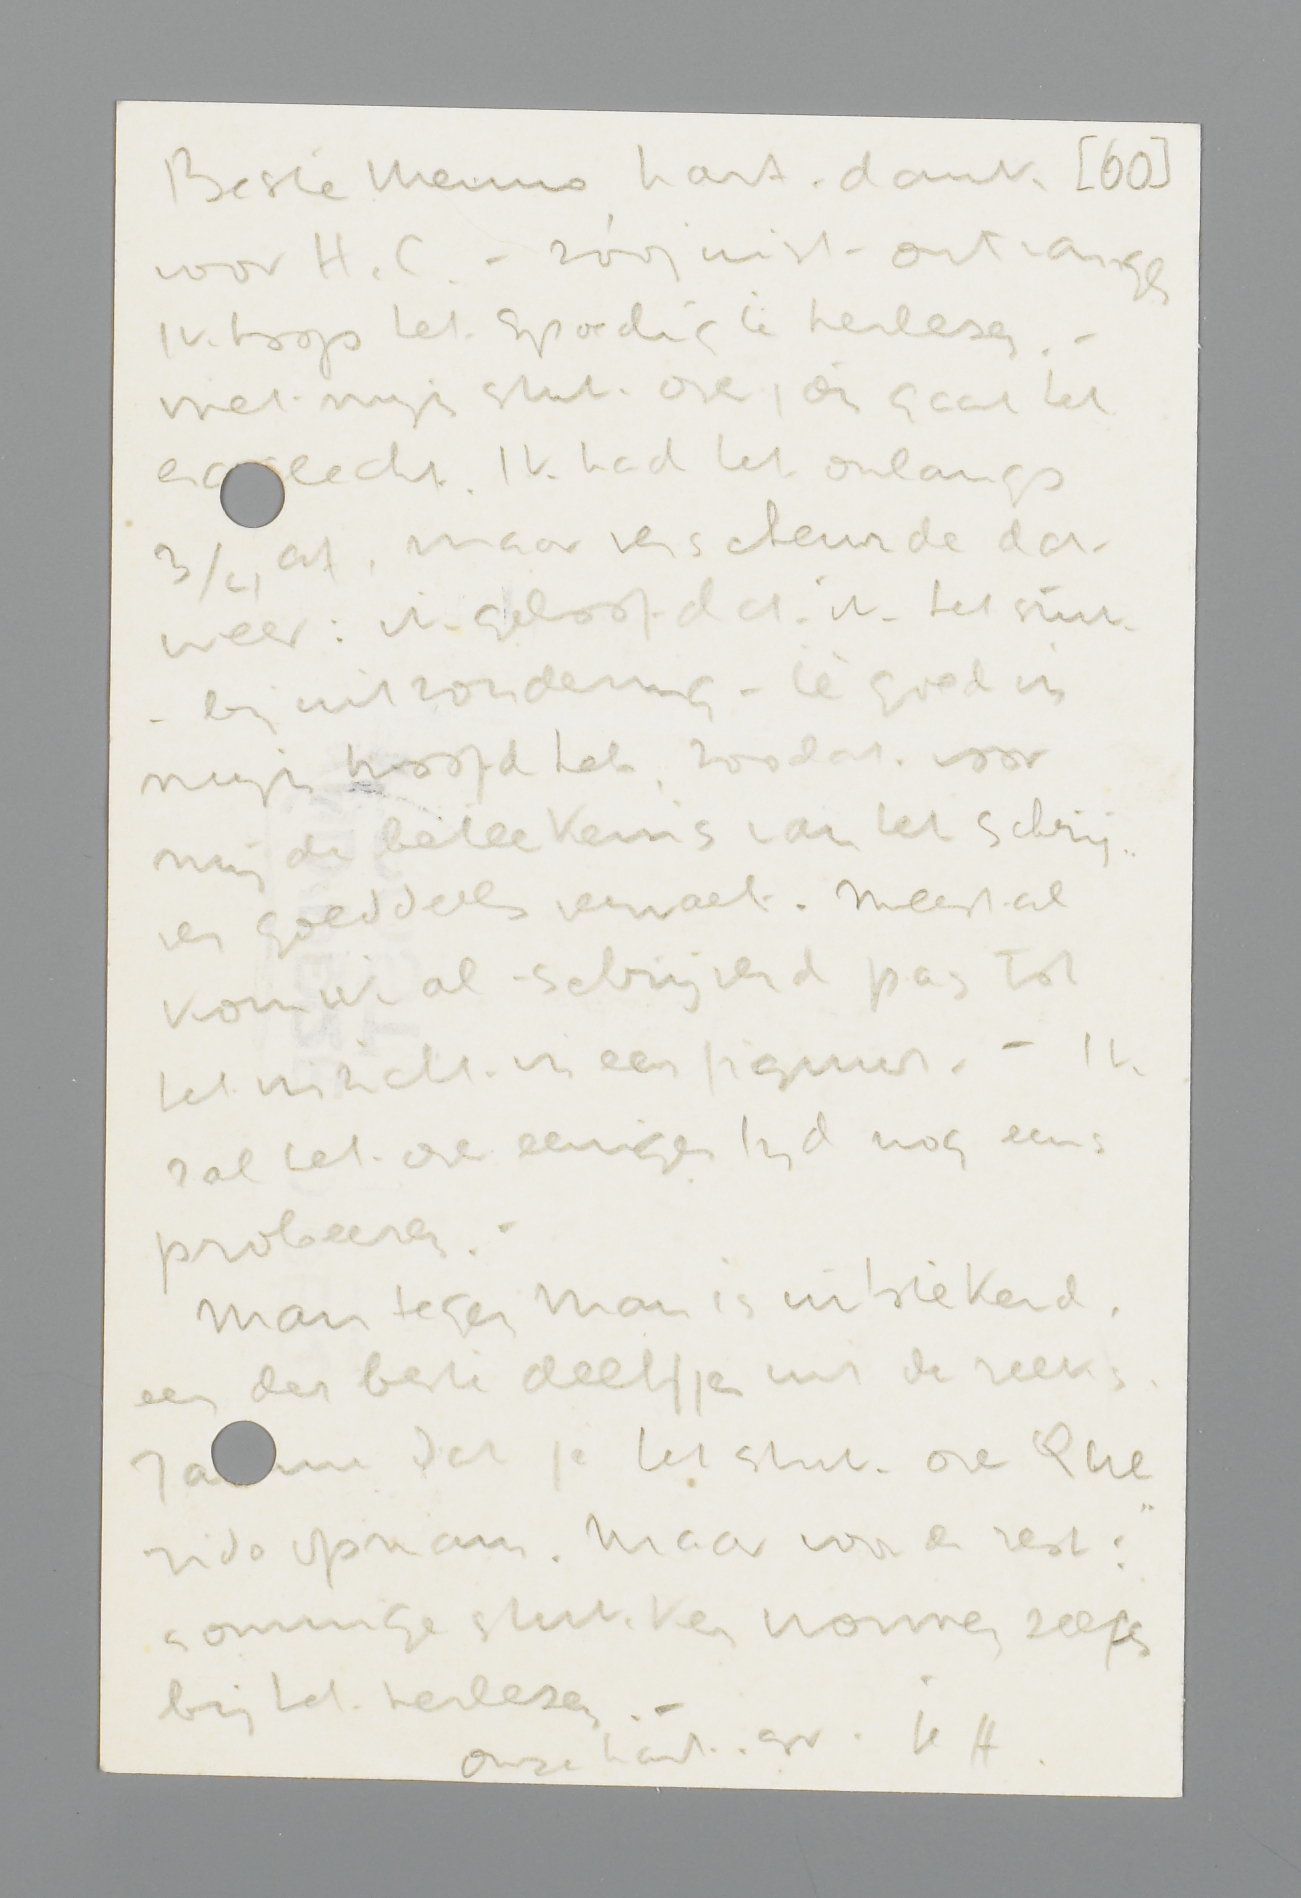 Beste Menno hart. dank. [60]
voor H.C. - zóójuist ontvangen
Ik hoop het spoedig te herlezen. -
met mijn stuk over, en gaat het
slecht. Ik had het onlangs
3/4 af, maar verscheurde dat
weer: ik geloof dat ik het stuk
- bij uitzondering - te goed in
mijn hoofd heb, zoodat voor
mij de beteekenis van het schrij-
ven goeddeels vervalt. Meestal
kom ik al schrijvend pas tot
het inzicht in een figuur. - Ik
zal het over eenigen tijd nog eens
probeeren. -
Man tegen Man is uitstekend,
een der beste deeltjes uit de reeks.
dat je het stuk over Que
rido opnam. Maar voor de rest:
sommige stukken wonnen zelfs
bij het herlezen. -
onze hart. gr. je H.